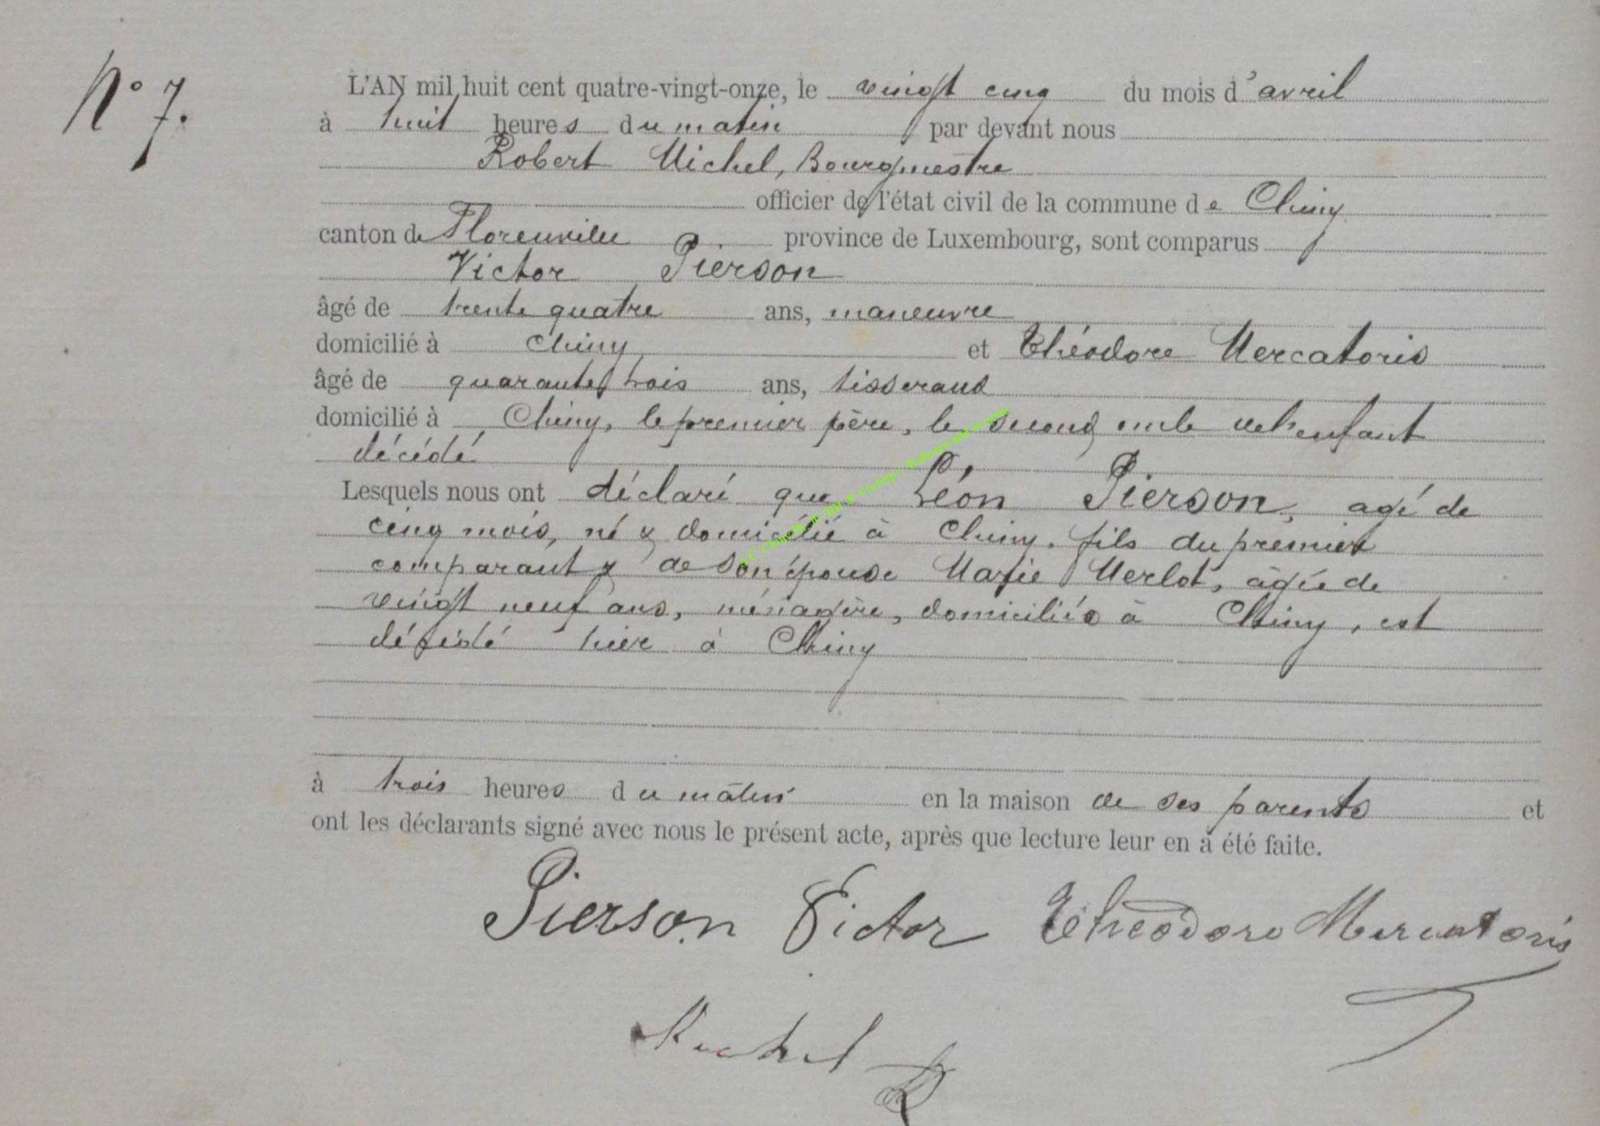 N° 7.
L'AN mil huit cent quatre-vingt-onze, le vingt cinq du mois d'avril
à huit heures du matin par devant nous
Robert Michel, Bourgmestre
officier de l'état civil de la commune de Chiny
canton de Florenville province de Luxembourg, sont comparus
Victor Pierson
âgé de trente quatre ans, manœuvre
domicilié à Chiny et Théodore Mercatoris
âgé de quarante trois ans, tisserand
domicilié à Chiny, le premier père, le second oncle de l'enfant
décédé
Lesquels nous ont déclaré que Léon Pierson, agé de
cinq mois, né & domicilié à Chiny, fils du premier
comparant & de son épouse Marie Merlot, âgée de
vingt neuf ans, ménagère, domiciliés à Chiny, est
décédé hier à Chiny
à trois heures du matin en la maison de ses parents et
ont les déclarants signé avec nous le présent acte, après que lecture leur en a été faite.
Pierson Victor Théodore Mercatoris
Michel R